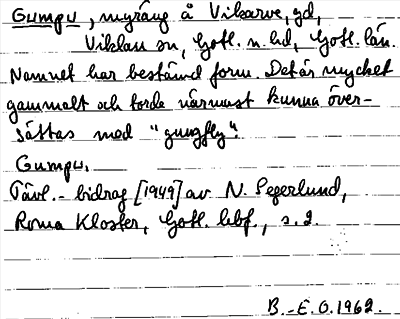 Gumpu, myräng å Vikarve, gd,
Viklau sn, Gotl. n. hd, Gotl. län.
Namnet har bestämd form. Det är mycket
gammalt och torde närmast kunna över-
sättas med "gungfly".
Gumpu.
Tävl.-bidrag [1949] av N. Pegerlund,
Roma Kloster, Gotl. hbf., s. 2.
B.-E. O. 1962.